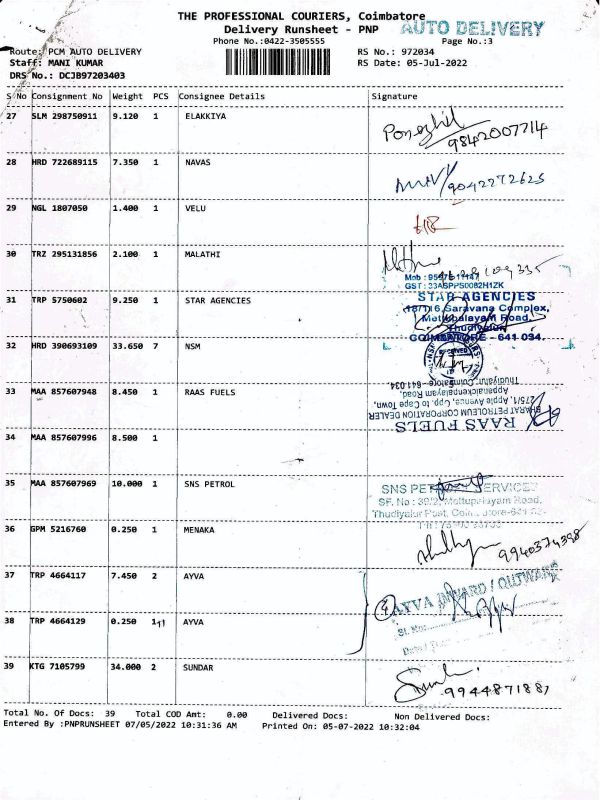 THE PROFESSIONAL COURIERS, Coimbatore
Delivery Runsheet - PNP
AUTO DELIVERY
Phone No.:0422-3505555
Page No.:3
Route: PCM AUTO DELIVERY
RS No.: 972034
Staff: MANI KUMAR
RS Date: 05-Jul-2022
DRS No.: DCJB97203403
S No Consignment No Weight PCS Consignee Details Signature
27 SLM 298750911 9.120 1 ELAKKIYA
9842007714
28 HRD 722689115 7.350 1 NAVAS
9042272625
29 NGL 1807050 1.400 1 VELU
30 TRZ 295131856 2.100 1 MALATHI
GST : 33ASPPS0082H1ZK
31 TRP 5750602 9.250 1 STAR AGENCIES
STAR AGENCIES
18/116, Saravana Complex,
Mettupalayam Road,
Thudiyalur
COIMBATORE - 641 034.
32 HRD 390693109 33.650 7 NSM
33 MAA 857607948 8.450 1 RAAS FUELS
RAAS FUELS
BHARAT PETROLEUM CORPORATION DEALER
275/1, Apple Avenue, Opp. to Cape Town,
Appanaickenpalayam Road,
Thudiyalur, Coimbatore - 641 034.
34 MAA 857607996 8.500 1
35 MAA 857607969 10.000 1 SNS PETROL
SNS PETROL SERVICE
SF. No : 39/2, Mettupalayam Road,
Thudiyalur Post, Coimbatore-641
36 GPM 5216760 0.250 1 MENAKA
9940374398
37 TRP 4664117 7.450 2 AYVA
AYVA INWARD / OUTWARD
38 TRP 4664129 0.250 1 AYVA
Sl. No:
39 KTG 7105799 34.000 2 SUNDAR
9944871881
Total No. Of Docs: 39 Total COD Amt: 0.00 Delivered Docs: Non Delivered Docs:
Entered By :PNPRUNSHEET 07/05/2022 10:31:36 AM Printed On: 05-07-2022 10:32:04